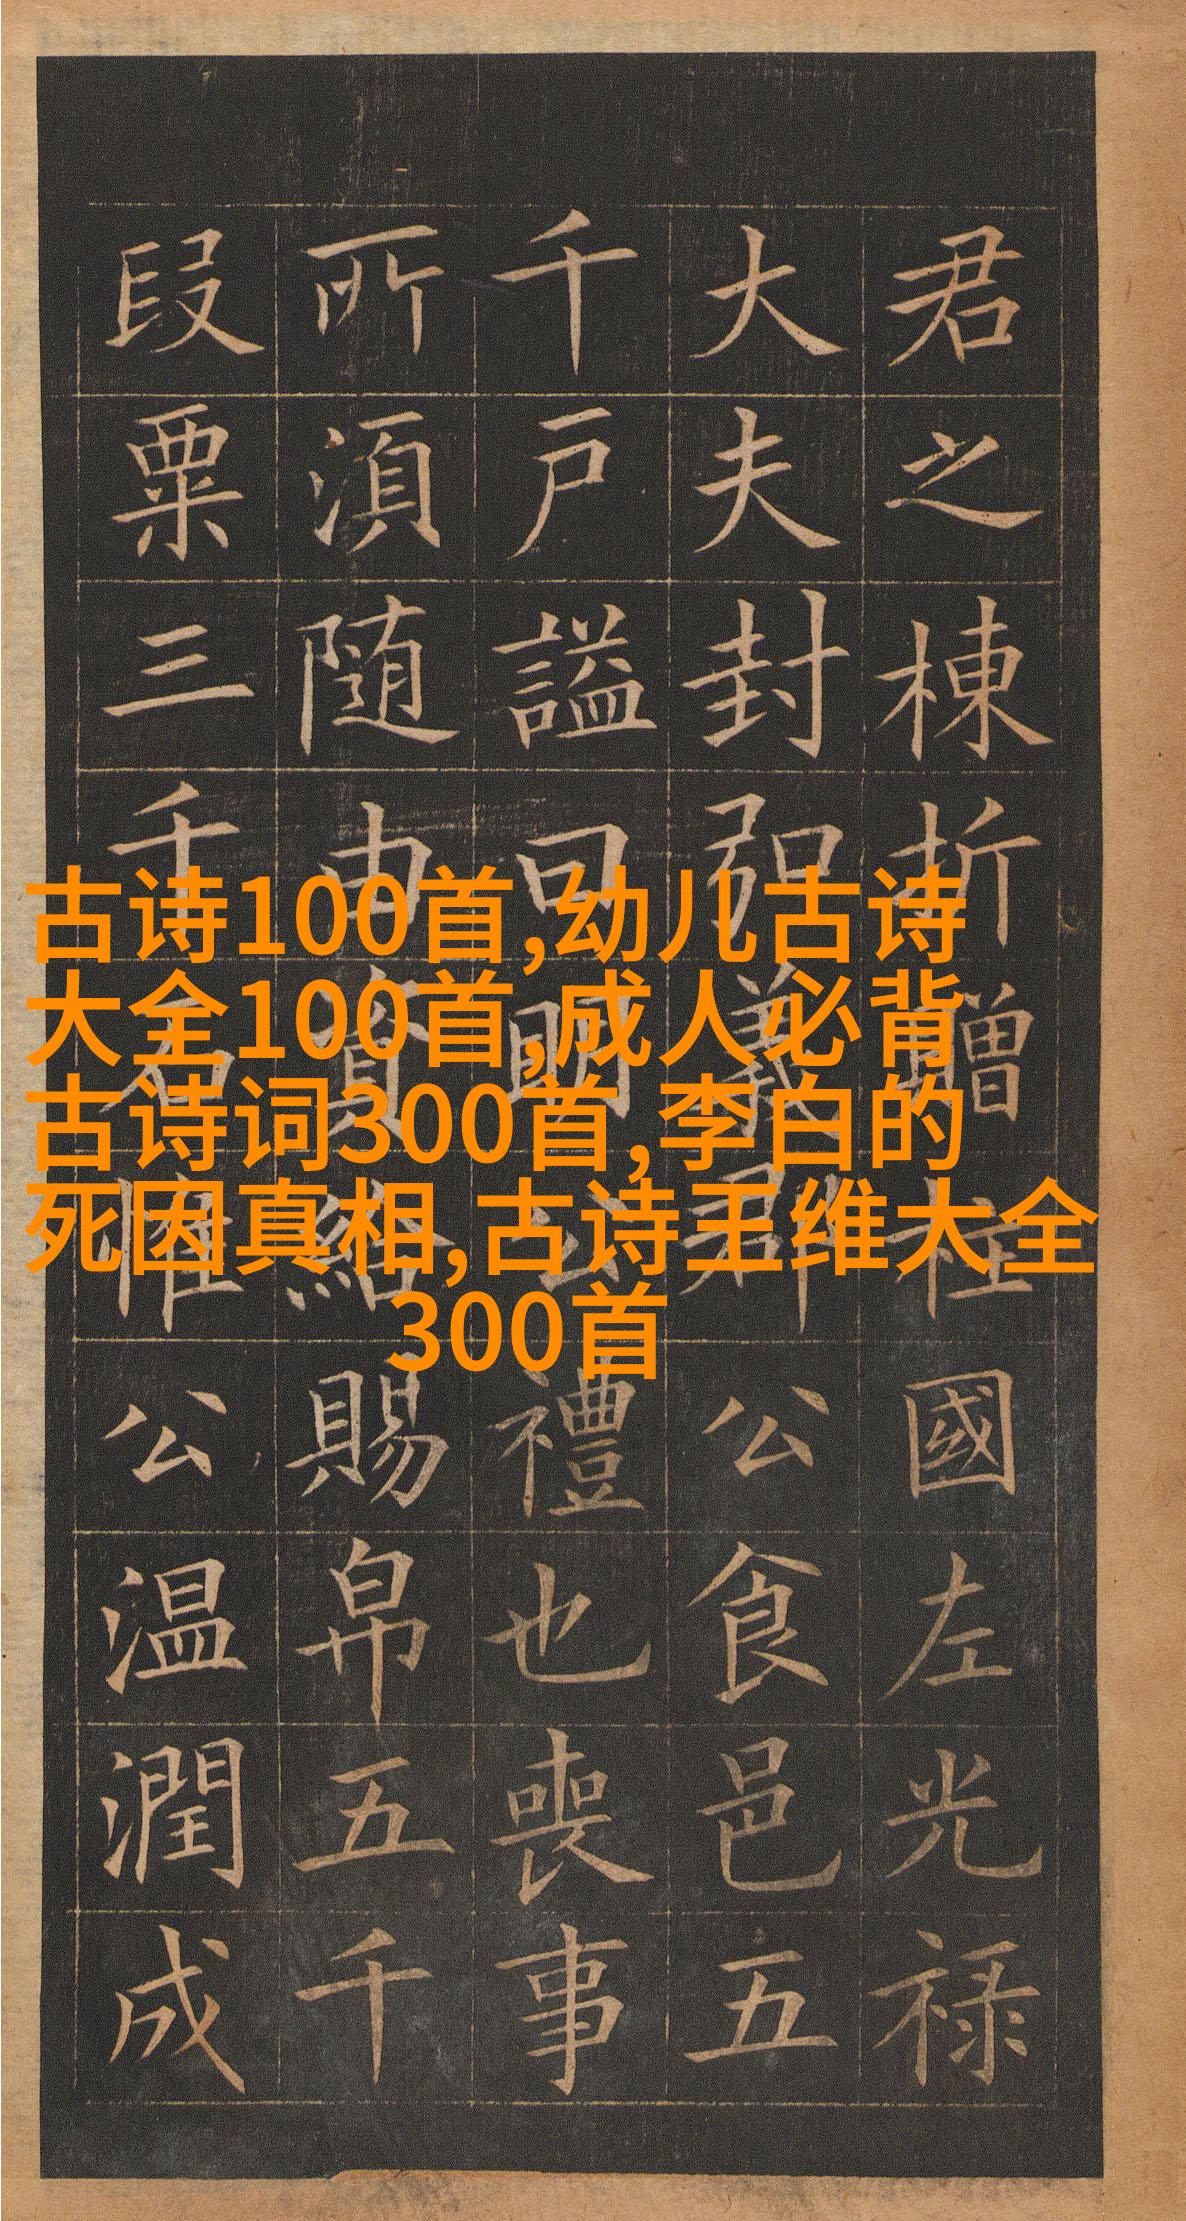 古诗100首,幼儿古诗
大全100首,成人必背
古诗词300首,李白的
死因真相,古诗王维大全
300首
君之棟折贈柱國左光禄
大夫封弘義郡公食邑五
千戸謚曰明公禮也喪事
所湏随由資給賜帛五千
段粟三千石惟公温潤成